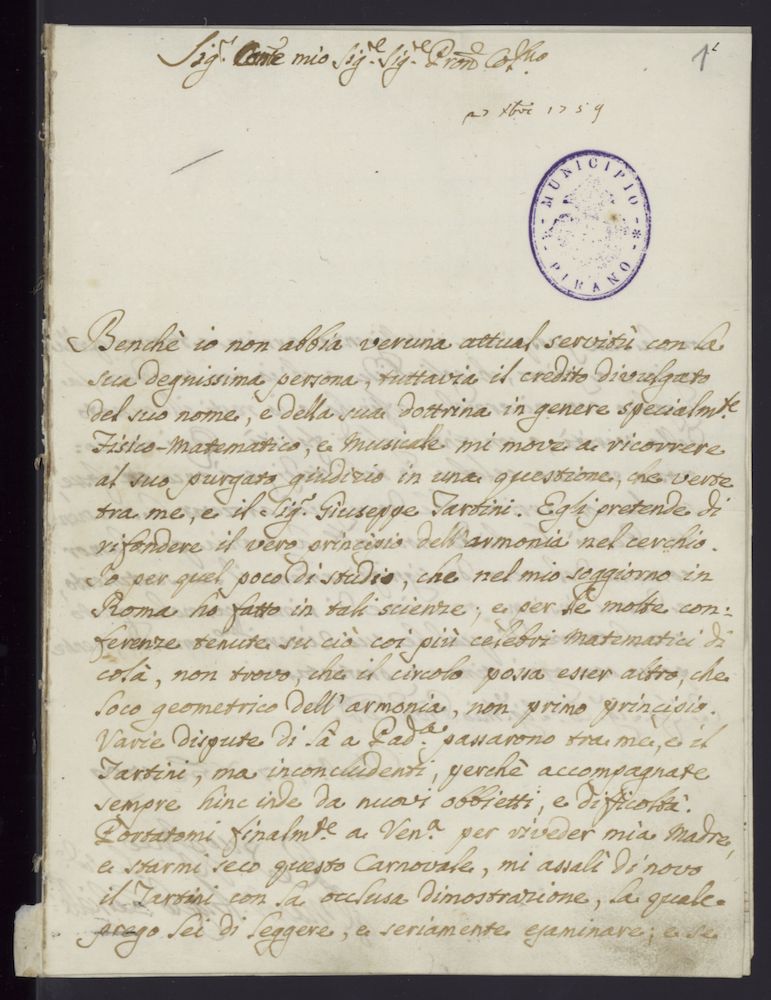 Sig.r Conte mio Sig.re Sig.re Pron. Col.mo
1
27 Xbre 1759
MUNICIPIO
PIRANO
Benchè io non abbia veruna attual servitù con la
sua degnissima persona, tuttavia il credito divulgato
del suo nome, e della sua dottrina in genere specialm.te
Fisico-Matematico, e Musicale mi move a ricorrere
al suo purgato giudizio in una questione, che verte
tra me, e il Sig.r Giuseppe Tartini. Egli pretende di
rifondere il vero principio dell'armonia nel cerchio.
Io per quel poco di studio, che nel mio soggiorno in
Roma hò fatto in tali scienze, e per le molte con:
ferenze tenute su ciò coi più celebri Matematici di
colà, non trovo, che il circolo possa esser altro, che
loco geometrico dell'armonia, non primo principio.
Varie dispute di là a Pad.a passarono tra me, e il
Tartini, ma inconcludenti, perchè accompagnate
sempre hinc inde da nuovi obbietti, e dificoltà.
Portatomi finalm.te a Ven.a per riveder mia Madre,
e starmi seco questo Carnovale, mi assalì di novo
il Tartini con la occlusa dimostrazione, la quale
prego lei di leggere, e seriamente esaminare; e se